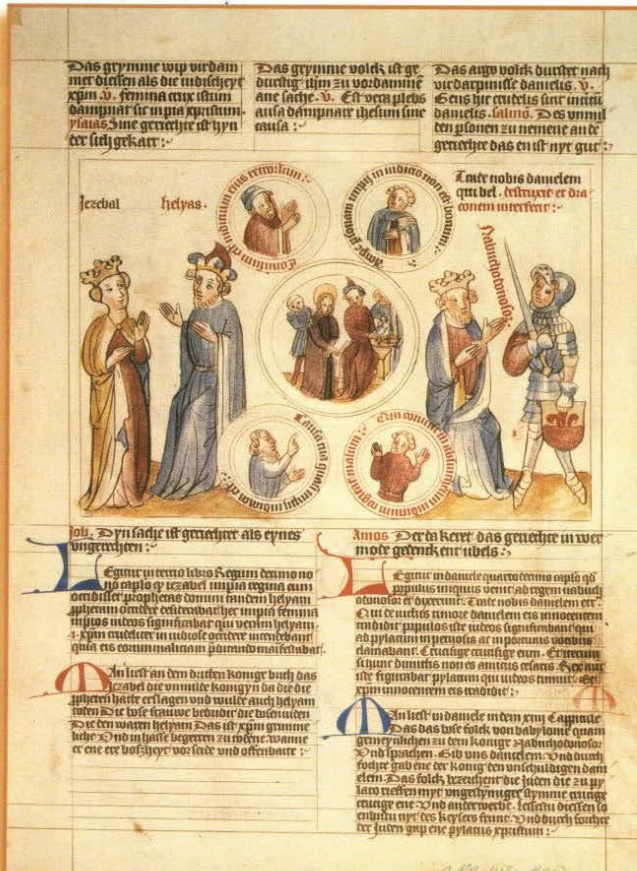 Das grymme wip virdam
met diessen als die iudischeyt
xpm. v. femina trux istum
dampnat sic inpia xpristum.
ysaias Ane gerechte ist hyn
der sich gekart :
Das grymme volck ist ge
durstig ihm zu vordamme
ane sache. v. Est vera plebs
ausa dampnare ihesum sine
causa :
Das argo volck durstet nach
virdarpnisse danielis. v.
Gens hic crudelis sint
danielis. salmo. Des unmil
den psonen zu nemene an de
gerechte das en ist nyt gut :
Jezebal
helyas.
Tradite nobis danielem
qui bel. destruxit et dra
conem interfecit :
Nabuchodonosor
Job. Dyn sache ist gerechter als eynes
ungerechten :
Legitur in tercio libro Regum decimo no
no caplo q iezabel impia regina cum
occidisset prophetas domini tandem helyam
prophetam occidere desiderabat hec impia femina
impios iudeos significabat qui verum helyam.
i. xpm crudeliter occidere intendebant
quia eis eorum maliciam pdicando manifestabat.
Man liest an dem dritten konige buch das
iezabel die unmilde konigyn da die die
ppheten hatte erslagen und wulde auch helyam
toten Die bose frauwe bedudit die bosen iuden
Die den waren helyam Das ist xpm gremme
liche Und in hasse begerten zu toDene wanne
er ene ere boszheyt vor seide und offenbarte :
Amos Der da keret das gerichte in wer
mode gedenckent ubels :
Legitur in daniele quarto decimo caplo qd
populus iniquus venit ad regem nabuch
odonosor et dixerunt. Tradite nobis danielem etc.
Qui de iudeis timore danielem eis innocentem
tradidit populus iste iudeos significabat qui
ad pylatum inportunis vocibus
clamabant. Crucifige crucifige eum. Et iterum
si hunc dimittis non es amicus cesaris. Rex aut
iste figurabat pylatum qui iudeos timuit. Et
xpm innocentem eis tradidit :
Man liest in daniele in dem xiiij Cappittele
Das das bose folck von babylonie quam
gemeynlichen zu dem konige Nabuchodonosor
Und sprachen. Gib uns danielem. Und durch
fochte gab ene der konig den unschuldigen dani
elem. Das folck bezeichent die iuden die zu py
lato rieffen myt ungestymiger stymme cruzige
cruzige ene. Und anderwerbe. lessestu diessen so
enbistu nyt des keysers frunt. Und durch forchte
der iuden gap ene pylatus xpristum :